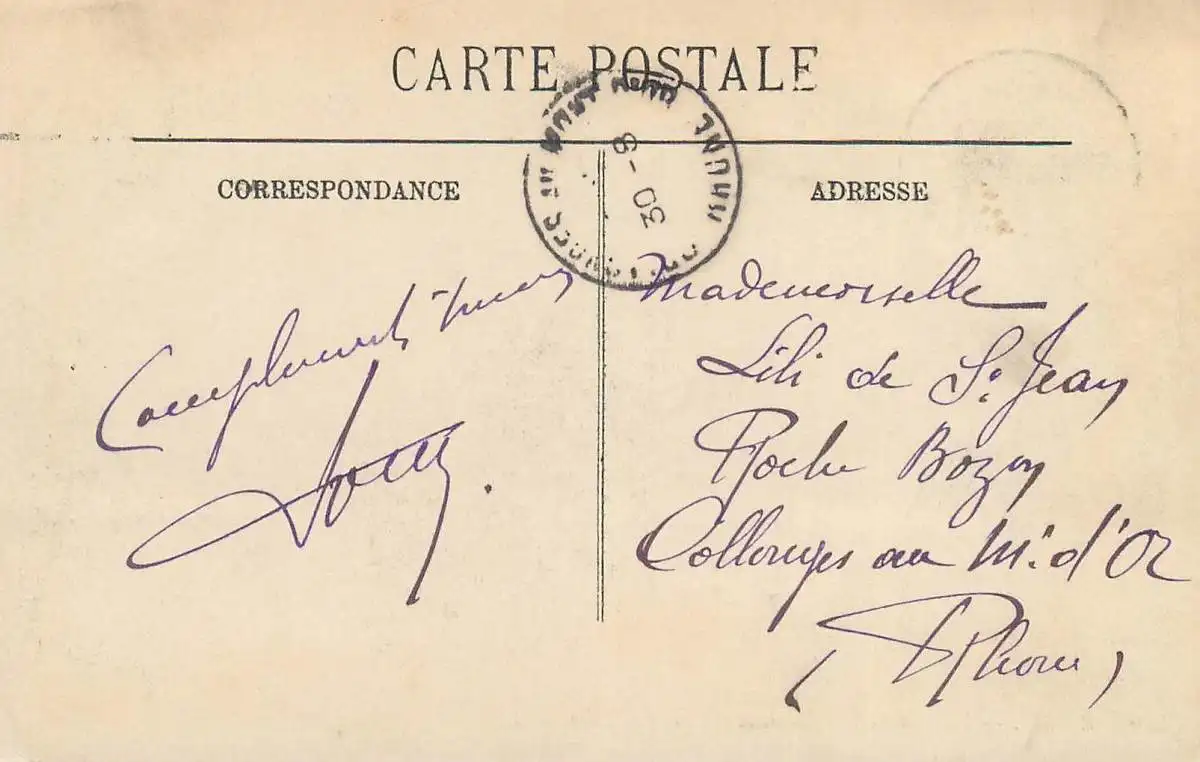 CARTE POSTALE
CORRESPONDANCE
ADRESSE
30-8
Mademoiselle
Lili de St Jean
Roche Bozon
Collonges au Mt d'Or
(Rhône)